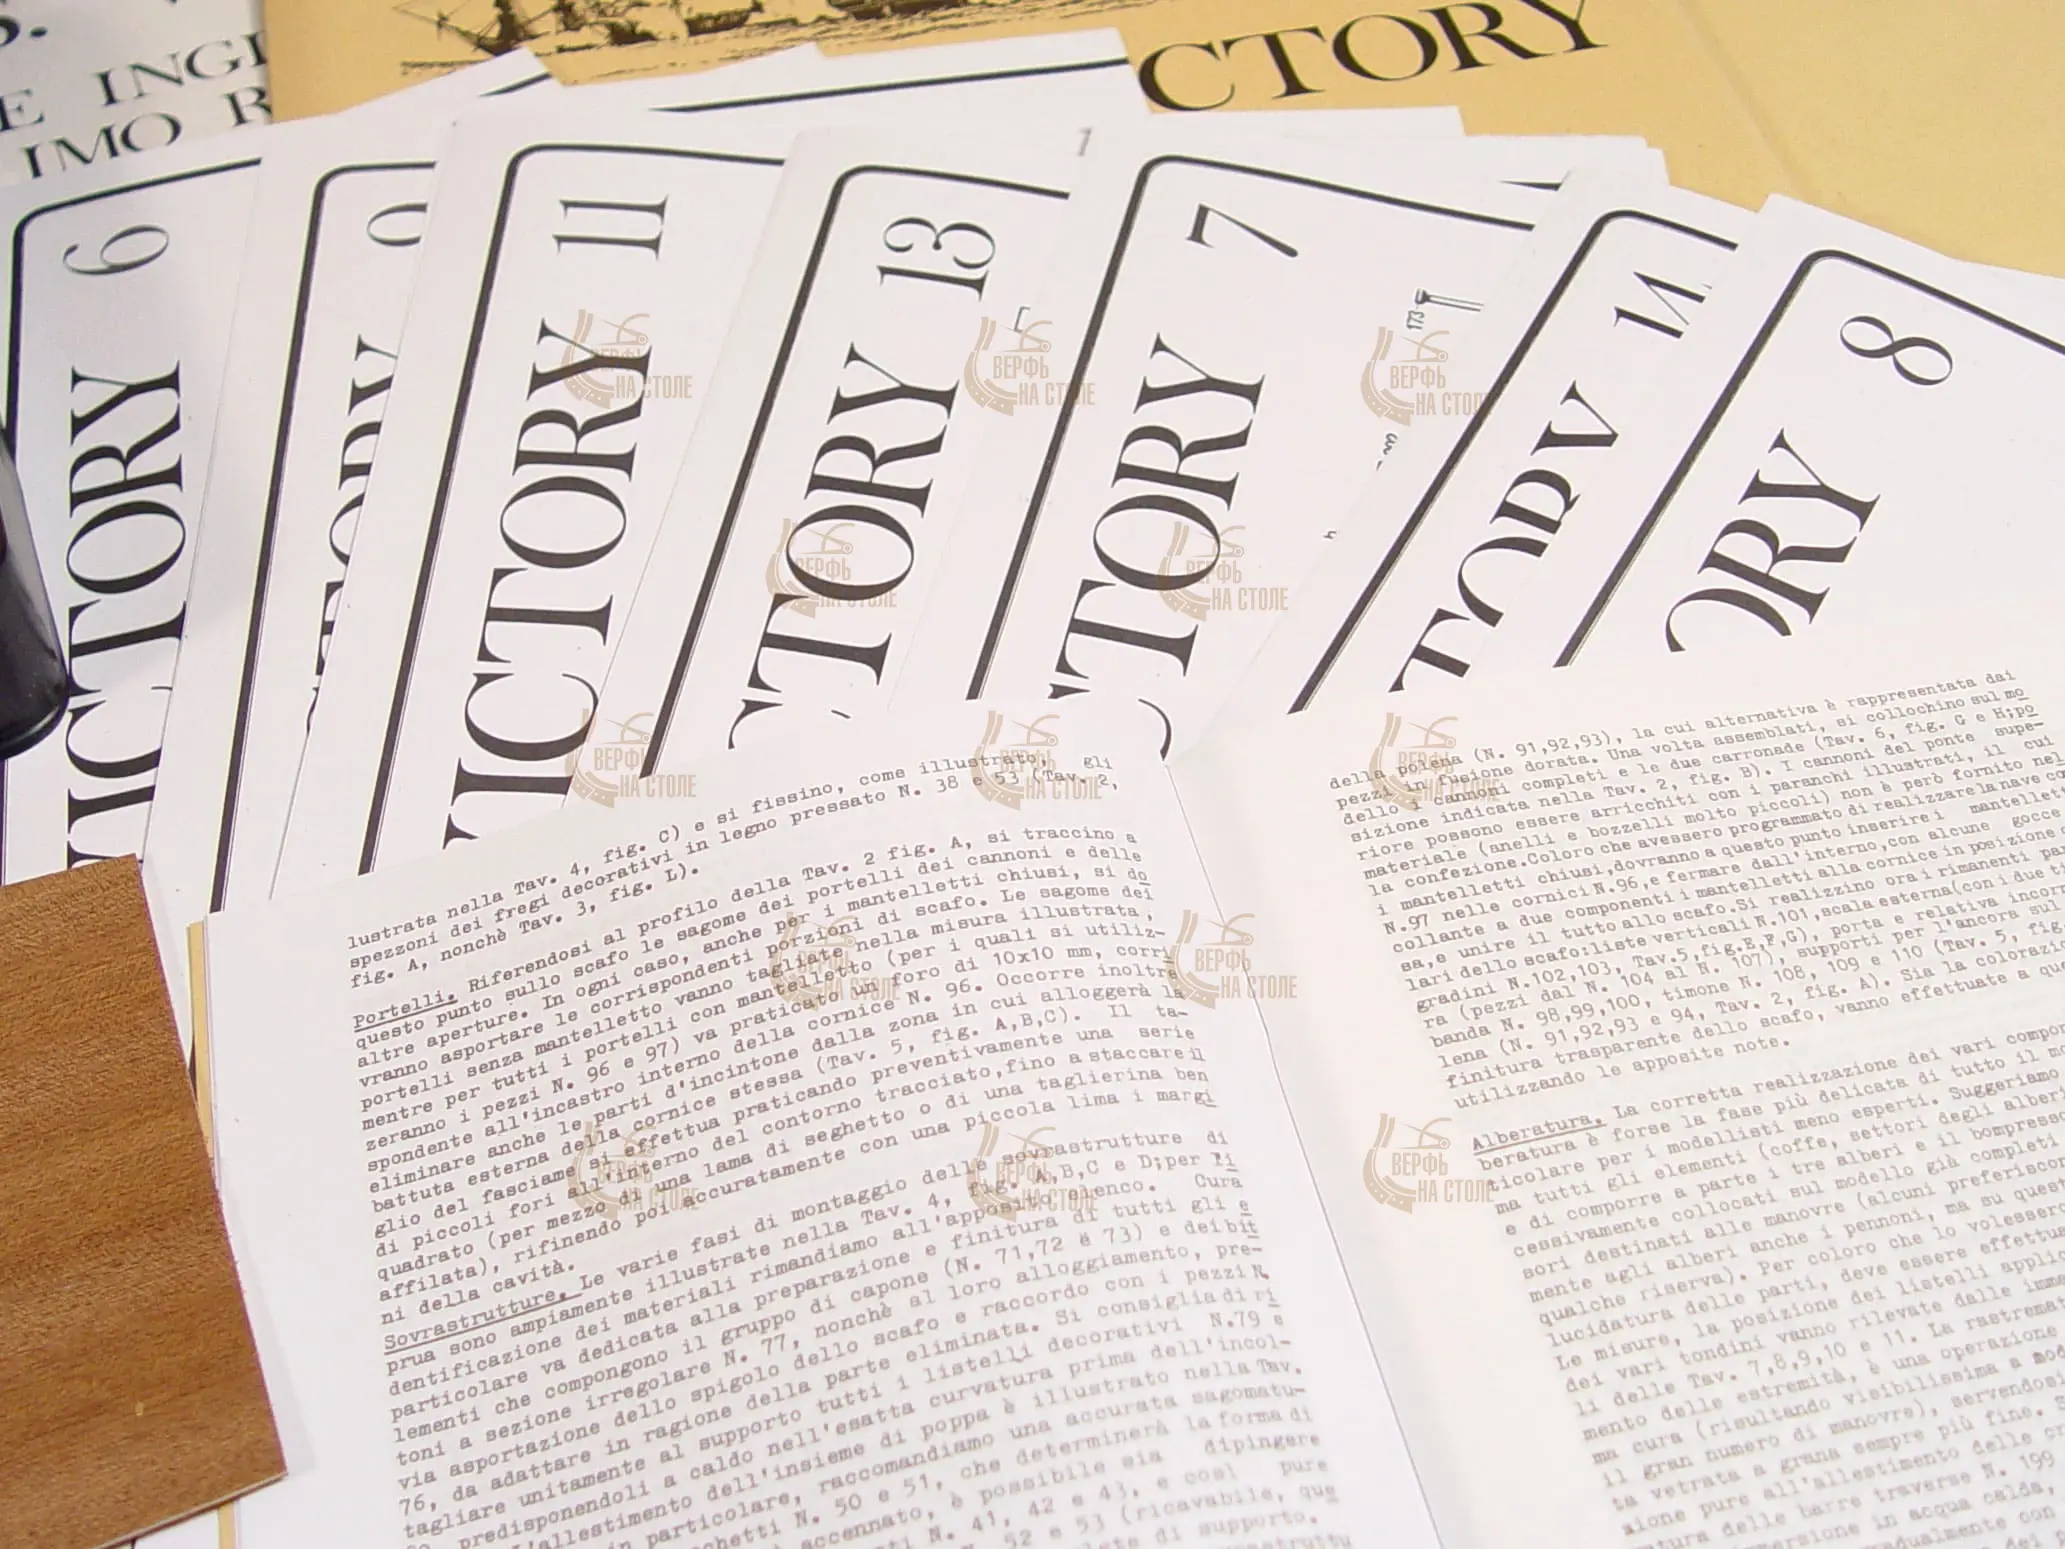 S.
E INGI
IMO R
CTORY
VICTORY 6
TORY
ICTORY 11
CTORY 13
1
CTORY 7
173
TORY 14
ORY 8
ВЕРФЬ НА СТОЛЕ
lustrata nella Tav. 4, fig. C) e si fissino, come illustrato, gli
spezzoni dei fregi decorativi in legno pressato N. 38 e 53 (Tav. 2,
fig. A, nonchè Tav. 3, fig. L).
Portelli. Riferendosi al profilo della Tav. 2 fig. A, si traccino a
questo punto sullo scafo le sagome dei portelli dei cannoni e delle
altre aperture. In ogni caso, anche per i mantelletti chiusi, si do
vranno asportare le corrispondenti porzioni di scafo. Le sagome dei
portelli senza mantelletto vanno tagliate nella misura illustrata,
mentre per tutti i portelli con mantelletto (per i quali si utiliz-
zeranno i pezzi N. 96 e 97) va praticato un foro di 10x10 mm, corri
spondente all'incastro interno della cornice N. 96. Occorre inoltre
eliminare anche le parti d'incintone dalla zona in cui alloggerà la
battuta esterna della cornice stessa (Tav. 5, fig. A,B,C). Il ta-
glio del fasciame si effettua praticando preventivamente una serie
di piccoli fori all'interno del contorno tracciato,fino a staccare il
quadrato (per mezzo di una lama di seghetto o di una taglierina ben
affilata), rifinendo poi accuratamente con una piccola lima i margi
ni della cavità.
Sovrastrutture. Le varie fasi di montaggio delle sovrastrutture di
prua sono ampiamente illustrate nella Tav. 4, fig. A,B,C e D;per l'i
dentificazione dei materiali rimandiamo all'apposito elenco. Cura
particolare va dedicata alla preparazione e finitura di tutti gli e
lementi che compongono il gruppo di capone (N. 71,72 e 73) e dei bit
toni a sezione irregolare N. 77, nonchè al loro alloggiamento, pre-
via asportazione dello spigolo dello scafo e raccordo con i pezzi N.
76, da adattare in ragione della parte eliminata. Si consiglia di ri
tagliare unitamente al supporto tutti i listelli decorativi N.79 e
predisponendoli a caldo nell'esatta curvatura prima dell'incol-
L'allestimento dell'insieme di poppa è illustrato nella Tav.
in particolare, raccomandiamo una accurata sagomatu-
chetti N. 50 e 51, che determinerà la forma di
accennato, è possibile sia dipingere
N. 41, 42 e 43, e così pure
52 e 53 (ricavabile, que
di supporto.
della polena (N. 91,92,93), la cui alternativa è rappresentata dai
pezzi in fusione dorata. Una volta assemblati, si collochino sul mo
dello i cannoni completi e le due carronade (Tav. 6, fig. G e H;po
sizione indicata nella Tav. 2, fig. B). I cannoni del ponte supe-
riore possono essere arricchiti con i paranchi illustrati, il cui
materiale (anelli e bozzelli molto piccoli) non è però fornito nel
la confezione.Coloro che avessero programmato di realizzare la nave co
i mantelletti chiusi,dovranno a questo punto inserire i mantellett
N.97 nelle cornici N.96,e fermare dall'interno,con alcune gocce
collante a due componenti i mantelletti alla cornice in posizione
sa,e unire il tutto allo scafo.Si realizzino ora i rimanenti pa
lari dello scafo:liste verticali N.101,scala esterna(con i due ti
gradini N.102,103, Tav.5,fig.E,F,G), porta e relativa incorn
ra (pezzi dal N. 104 al N. 107), supporti per l'ancora sul
banda N. 98,99,100, timone N. 108, 109 e 110 (Tav. 5, fig.
lena (N. 91,92,93 e 94, Tav. 2, fig. A). Sia la colorazi
finitura trasparente dello scafo, vanno effettuate a qu
utilizzando le apposite note.
Alberatura. La corretta realizzazione dei vari compon
beratura è forse la fase più delicata di tutto il mo
ticolare per i modellisti meno esperti. Suggeriamo
ma tutti gli elementi (coffe, settori degli alberi
e di comporre a parte i tre alberi e il bompress
cessivamente collocati sul modello già completi
sori destinati alle manovre (alcuni preferiscon
mente agli alberi anche i pennoni, ma su quest
qualche riserva). Per coloro che lo volesser
lucidatura delle parti, deve essere effettu
Le misure, la posizione dei listelli applic
dei vari tondini vanno rilevate dalle imm
li delle Tav. 7,8,9,10 e 11. La rastrema
mento delle estremità, è una operazione
ma cura (risultando visibilissima a mod
il gran numero di manovre), servendosi
ta vetrata a grana sempre più fine.
zione pure all'allestimento delle cr
delle barre traverse N. 199
in acqua calda,